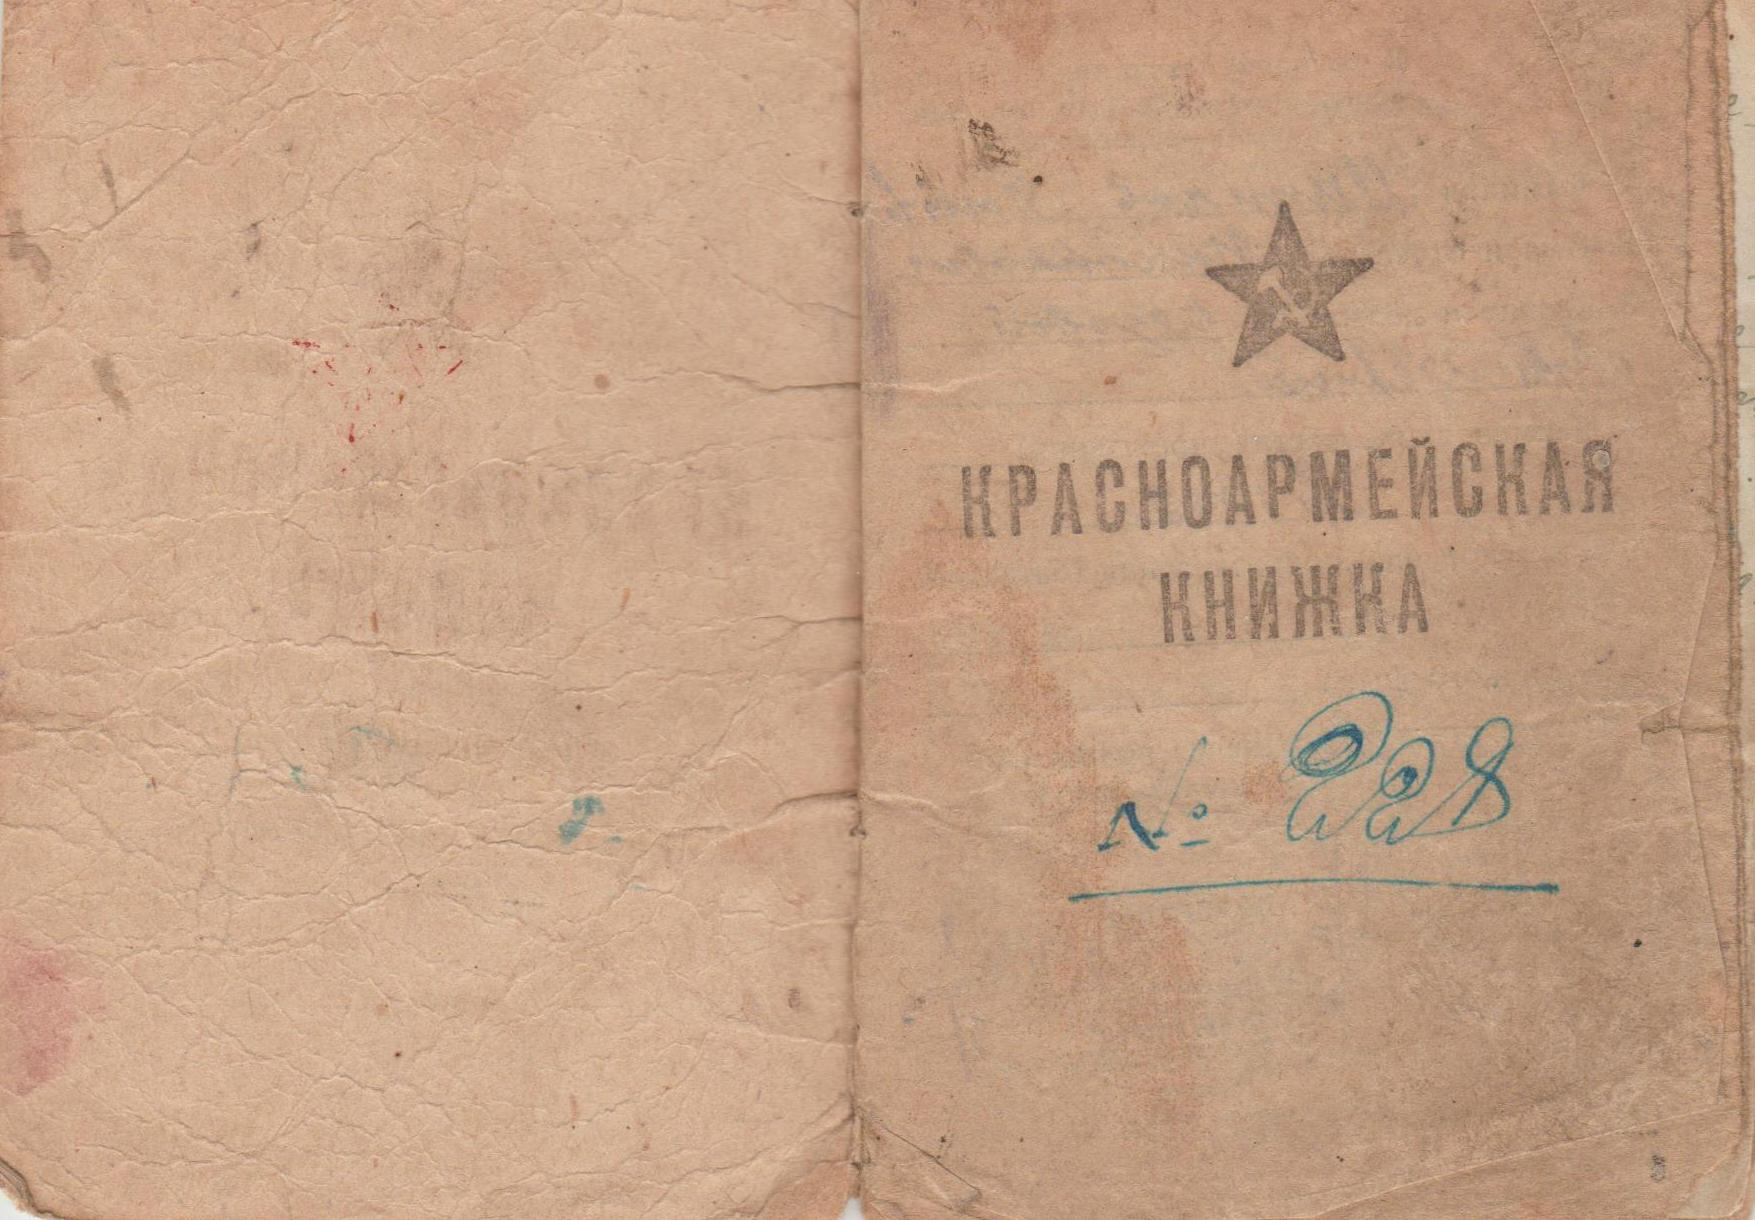 КРАСНОАРМЕЙСКАЯ
КНИЖКА
№ 228